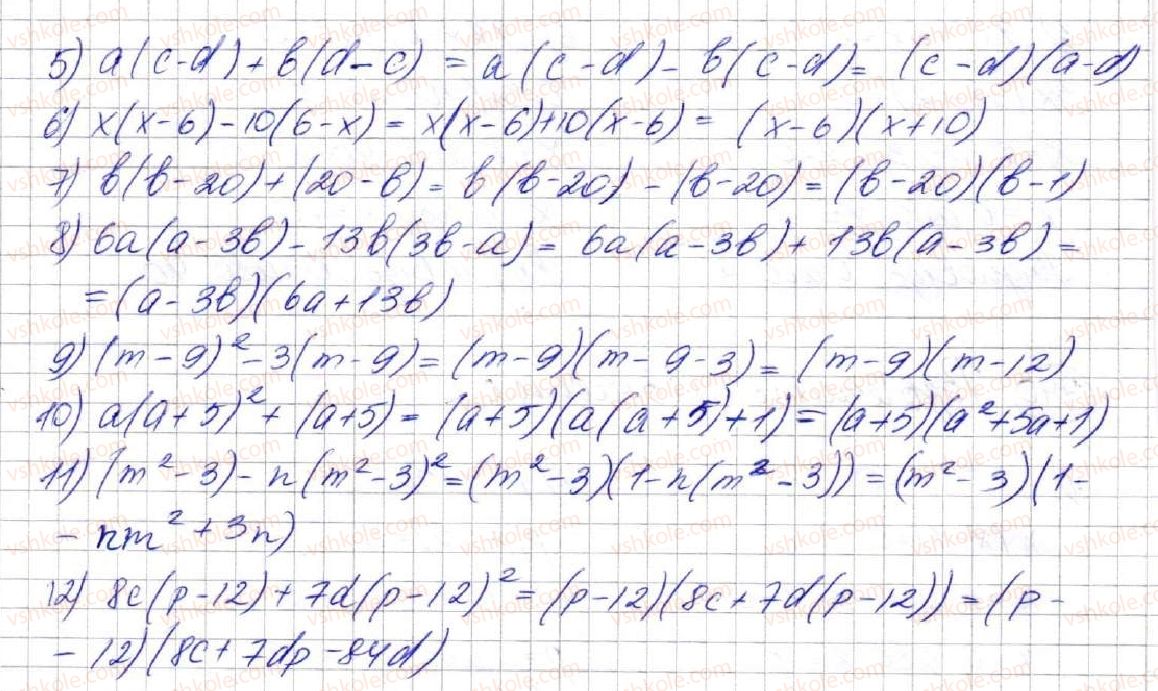 5) a(c-d)+b(d-c) = a(c-d)-b(c-d) = (c-d)(a-d)
6) x(x-6)-10(6-x) = x(x-6)+10(x-6) = (x-6)(x+10)
7) b(b-20)+(20-b) = b(b-20)-(b-20) = (b-20)(b-1)
8) 6a(a-3b)-13b(3b-a) = 6a(a-3b)+13b(a-3b) =
=(a-3b)(6a+13b)
9) (m-9)²-3(m-9) = (m-9)(m-9-3) = (m-9)(m-12)
10) a(a+5)²+(a+5) = (a+5)(a(a+5)+1) = (a+5)(a²+5a+1)
11) (m²-3)-n(m²-3)² = (m²-3)(1-n(m²-3)) = (m²-3)(1-
-nm²+3n)
12) 8c(p-12)+7d(p-12)² = (p-12)(8c+7d(p-12)) = (p-
-12)(8c+7dp-84d)